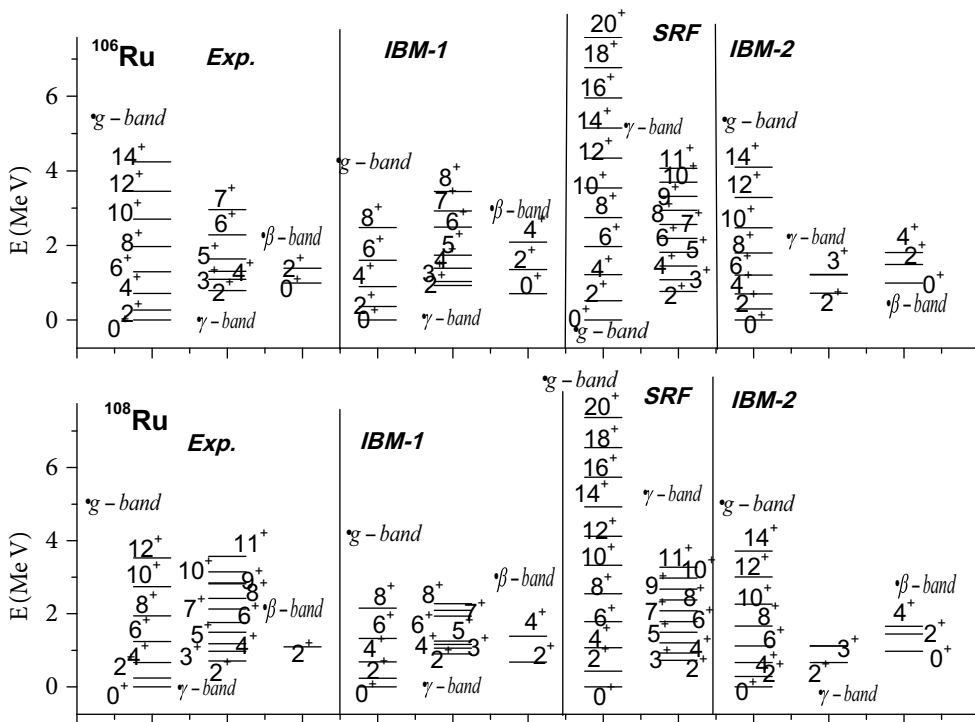 ¹⁰⁶Ru
Exp.
IBM-1
SRF
IBM-2
E (MeV)
6
4
2
0
•g – band
14⁺
12⁺
10⁺
8⁺
6⁺
4⁺
2⁺
0⁺
7⁺
6⁺
5⁺
4⁺
3⁺
2⁺
•γ – band
•β – band
2⁺
0⁺
•g – band
8⁺
6⁺
4⁺
2⁺
0⁺
8⁺
7⁺
6⁺
5⁺
4⁺
3⁺
2⁺
•γ – band
•β – band
4⁺
2⁺
0⁺
20⁺
18⁺
16⁺
14⁺
12⁺
10⁺
8⁺
6⁺
4⁺
2⁺
0⁺
•g – band
•γ – band
11⁺
10⁺
9⁺
8⁺
7⁺
6⁺
5⁺
4⁺
3⁺
2⁺
•g – band
14⁺
12⁺
10⁺
8⁺
6⁺
4⁺
2⁺
0⁺
•γ – band
3⁺
2⁺
4⁺
2⁺
0⁺
•β – band
¹⁰⁸Ru
Exp.
IBM-1
SRF
IBM-2
E (MeV)
6
4
2
0
•g – band
12⁺
10⁺
8⁺
6⁺
4⁺
2⁺
0⁺
11⁺
10⁺
9⁺
8⁺
7⁺
6⁺
5⁺
4⁺
3⁺
2⁺
•γ – band
•β – band
2⁺
•g – band
8⁺
6⁺
4⁺
2⁺
0⁺
8⁺
7⁺
6⁺
5⁺
4⁺
3⁺
2⁺
•γ – band
•β – band
4⁺
2⁺
•g – band
20⁺
18⁺
16⁺
14⁺
12⁺
10⁺
8⁺
6⁺
4⁺
2⁺
0⁺
•γ – band
11⁺
10⁺
9⁺
8⁺
7⁺
6⁺
5⁺
4⁺
3⁺
2⁺
•g – band
14⁺
12⁺
10⁺
8⁺
6⁺
4⁺
2⁺
0⁺
3⁺
2⁺
•γ – band
•β – band
4⁺
2⁺
0⁺